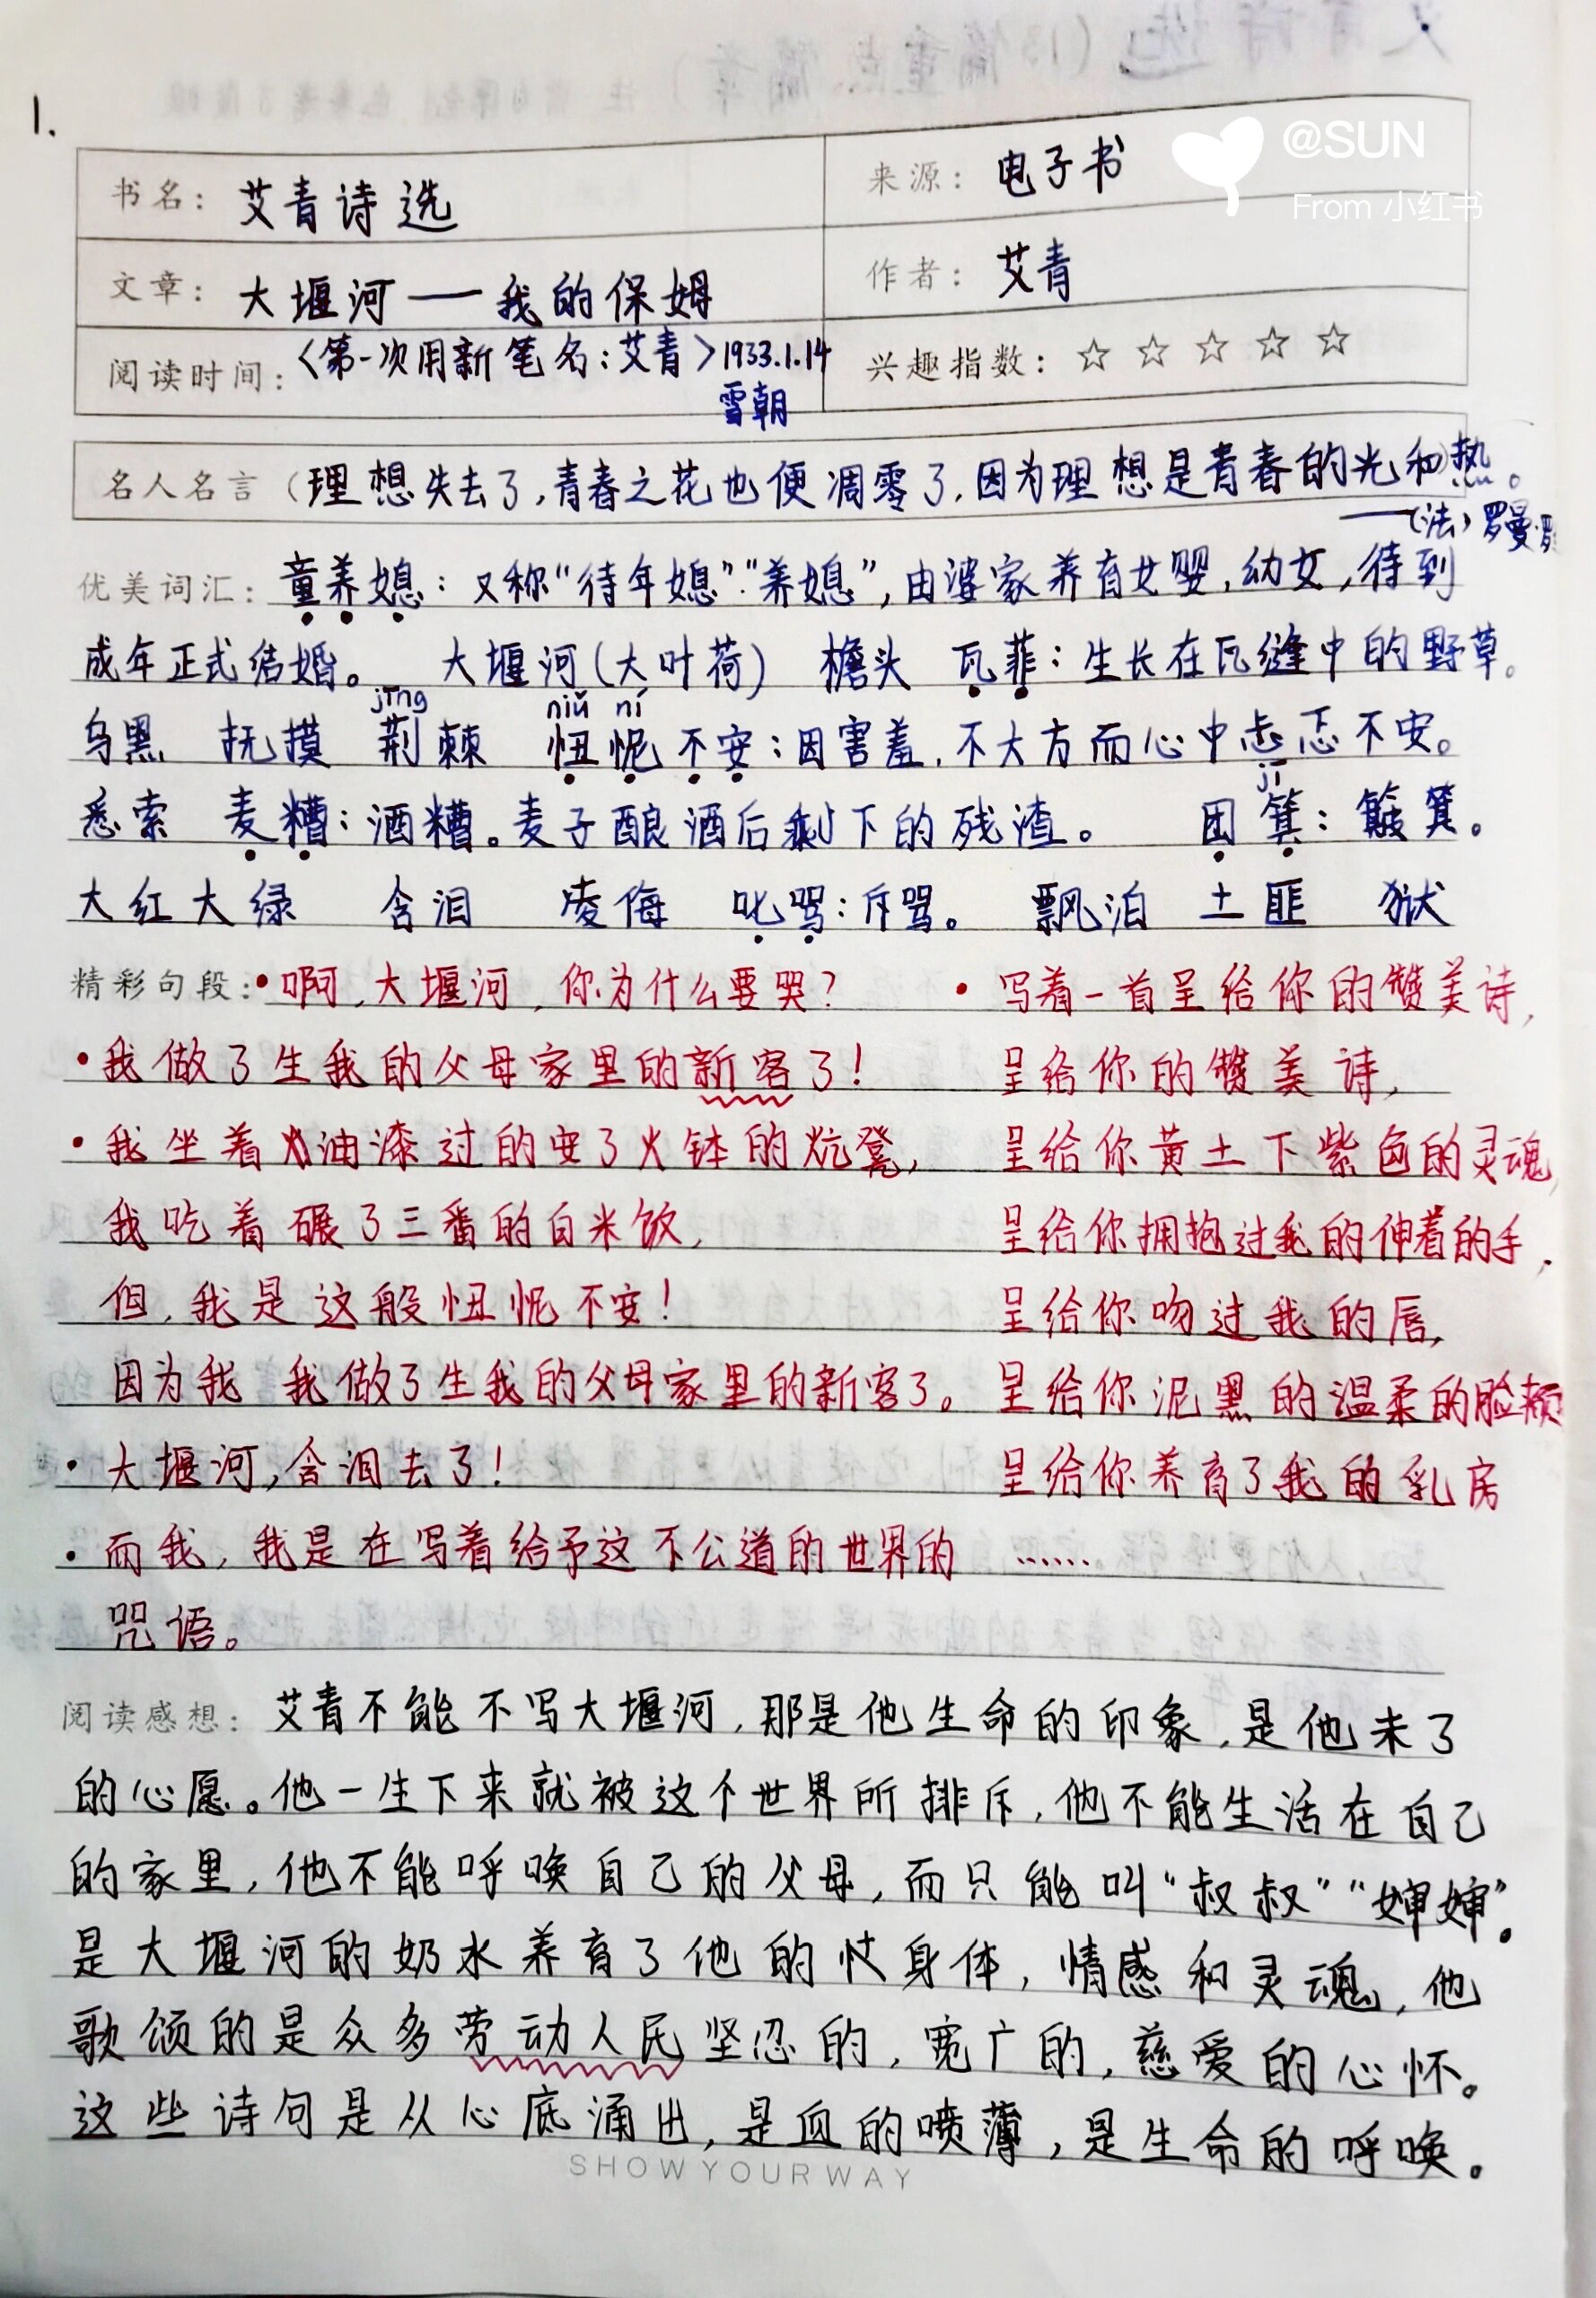 1.
@SUN
From 小红书
书名：艾青诗选
来源：电子书
文章：大堰河——我的保姆
作者：艾青
阅读时间：〈第一次用新笔名：艾青〉1933.1.14
雪朝
兴趣指数：☆ ☆ ☆ ☆ ☆
名人名言（理想失去了，青春之花也便凋零了，因为理想是青春的光和热。
——（法）罗曼·罗
优美词汇：童养媳：又称“待年媳”“养媳”，由婆家养育女婴，幼女，待到
成年正式结婚。 大堰河（大叶荷） 檐头 瓦菲：生长在瓦缝中的野草。
jīng niǔ ní
乌黑 抚摸 荆棘 忸怩不安：因害羞，不大方而心中忐忑不安。
jī
悉索 麦糟：酒糟。麦子酿酒后剩下的残渣。 团箕：簸箕。
大红大绿 含泪 凌侮 叱骂：斥骂。 飘泊 土匪 狱
精彩句段：•啊，大堰河，你为什么要哭？
•我做了生我的父母家里的新客了！
•我坐着油漆过的安了火钵的炕凳，
我吃着碾了三番的白米饭，
但，我是这般忸怩不安！
因为我 我做了生我的父母家里的新客了。
•大堰河，含泪去了！
•而我，我是在写着给予这不公道的世界的
咒语。
•写着一首呈给你的赞美诗，
呈给你的赞美诗，
呈给你黄土下紫色的灵魂，
呈给你拥抱过我的伸着的手，
呈给你吻过我的唇，
呈给你泥黑的温柔的脸颊
呈给你养育了我的乳房
……
阅读感想：艾青不能不写大堰河，那是他生命的印象，是他未了
的心愿。他一生下来就被这个世界所排斥，他不能生活在自己
的家里，他不能呼唤自己的父母，而只能叫“叔叔”“婶婶”。
是大堰河的奶水养育了他的身体，情感和灵魂，他
歌颂的是众多劳动人民坚忍的，宽广的，慈爱的心怀。
这些诗句是从心底涌出，是血的喷薄，是生命的呼唤。
SHOW YOUR WAY